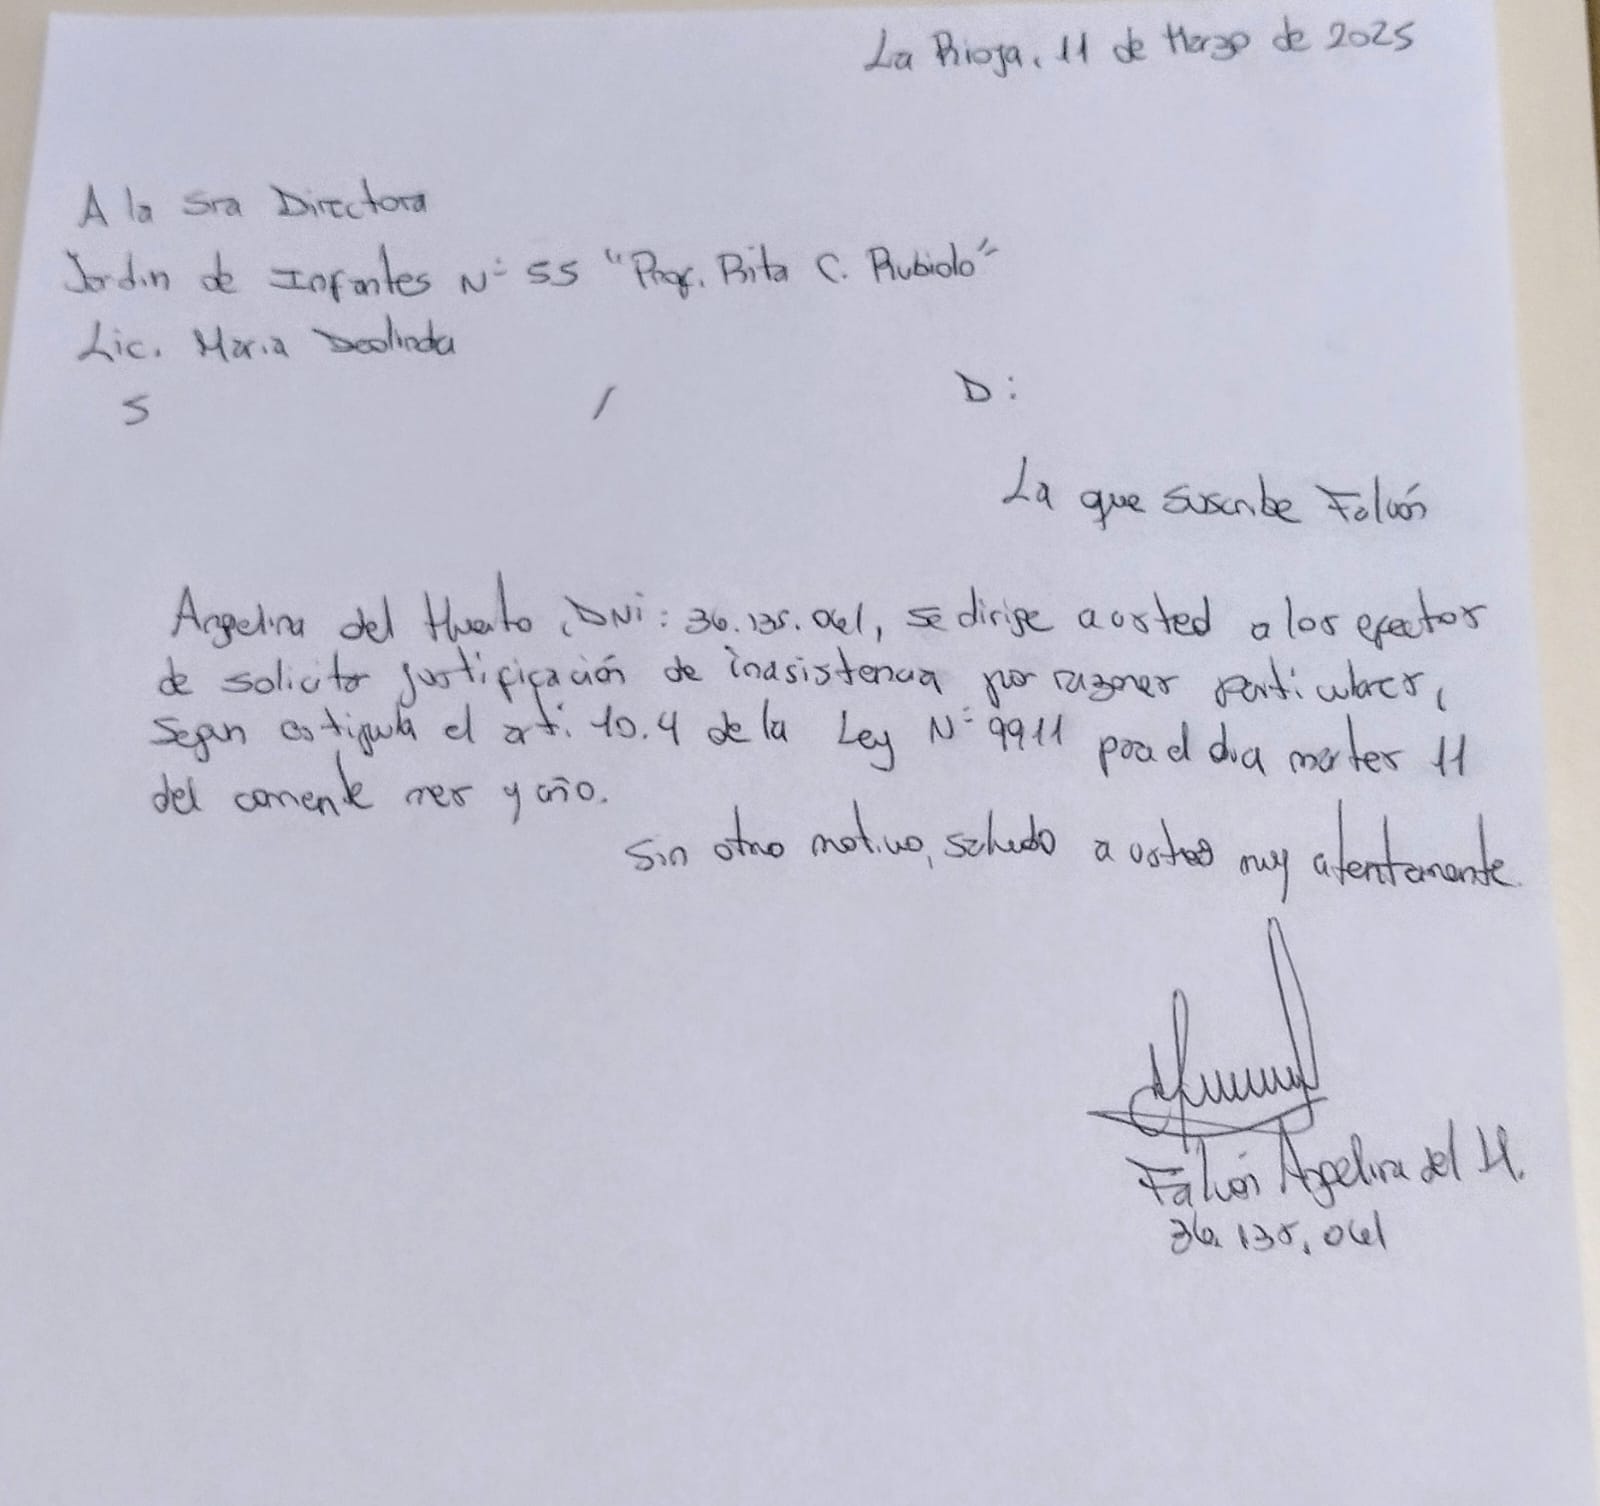 La Rioja, 11 de Marzo de 2025
A la Sra Directora
Jardin de Infantes N° 55 "Prof. Rita C. Rubiolo"
Lic. Maria Deolinda
S / D:
La que suscribe Falcón
Angelina del Huerto, DNI: 36.135.061, se dirige a usted a los efectos
de solicitar justificación de inasistencia por razones particulares,
Segun estipula el art. 10.4 de la Ley N° 9911 para el dia martes 11
del corriente mes y año.
Sin otro motivo, saludo a usted muy atentamente.
Falcón Angelina del H.
36.135.061